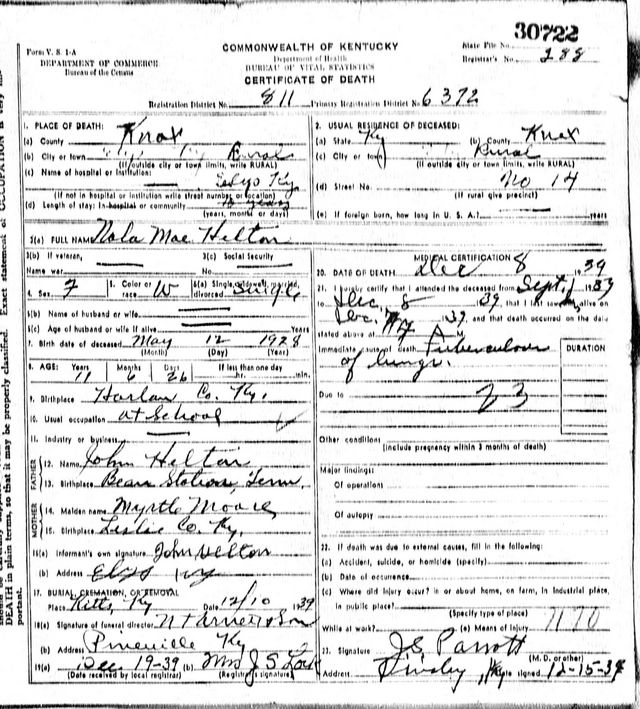 30722
Form V. S. 1-A
COMMONWEALTH OF KENTUCKY
State File No.
DEPARTMENT OF COMMERCE
Department of Health
Registrar's No. 288
Bureau of the Census
BUREAU OF VITAL STATISTICS
CERTIFICATE OF DEATH
Registration District No. 811 Primary Registration District No 6372
1. PLACE OF DEATH:
(a) County Knox
(b) City or town Rural
(If outside city or town limits, write RURAL)
(c) Name of hospital or institution:
Elys Ky
(If not in hospital or institution write street number or location)
(d) Length of stay: In hospital or community
(years, months or days)
2. USUAL RESIDENCE OF DECEASED:
(a) State Ky (b) County Knox
(c) City or town Rural
(If outside city or town limits, write RURAL)
(d) Street No. No 14
(If rural give precinct)
(e) If foreign born, how long in U. S. A.? years
3(a) FULL NAME Nola Mae Helton
3(b) If veteran, 3(c) Social Security
Name war No.
4. Sex F 5. Color or race W 6(a) Single, widowed, married, divorced Single
6(b) Name of husband or wife
6(c) Age of husband or wife if alive Years
7. Birth date of deceased May 12 1928
(Month) (Day) (Year)
8. AGE: Years Months Days If less than one day
11 6 26 hr. min.
9. Birthplace Harlan Co. Ky.
10. Usual occupation at School
11. Industry or business
FATHER
12. Name John Helton
13. Birthplace Bean Station, Tenn
MOTHER
14. Maiden name Myrtle Moore
15. Birthplace Leslie Co. Ky.
16(a) Informant's own signature John Helton
(b) Address Elys Ky
17. BURIAL, CREMATION, OR REMOVAL
Place Ky Date 12/10 1939
18(a) Signature of funeral director
(b) Address Pineville Ky
19(a) Dec 19-39 (b) Mrs J S
(Date received by local registrar) (Registrar's signature)
MEDICAL CERTIFICATION
20. DATE OF DEATH Dec 8 1939
21. I hereby certify that I attended the deceased from Sept 1 1939
to Dec. 8 1939, that I last saw alive on
Dec. 1939, and that death occurred on the date
stated above at A M.
Immediate cause of death Tuberculosis
of lungs.
DURATION
Due to
23
Other conditions
(Include pregnancy within 3 months of death)
Major findings:
Of operations
Of autopsy
22. If death was due to external causes, fill in the following:
(a) Accident, suicide, or homicide (specify)
(b) Date of occurrence
(c) Where did injury occur? in or about home, on farm, in industrial place,
in public place?
(Specify type of place)
While at work? (e) Means of Injury
23. Signature J.S. Parrott
(M. D. or other)
Address Ky Date signed 12-15-39
DEATH in plain terms, so that it may be properly classified. Exact statement of OCCUPATION is very
portant.